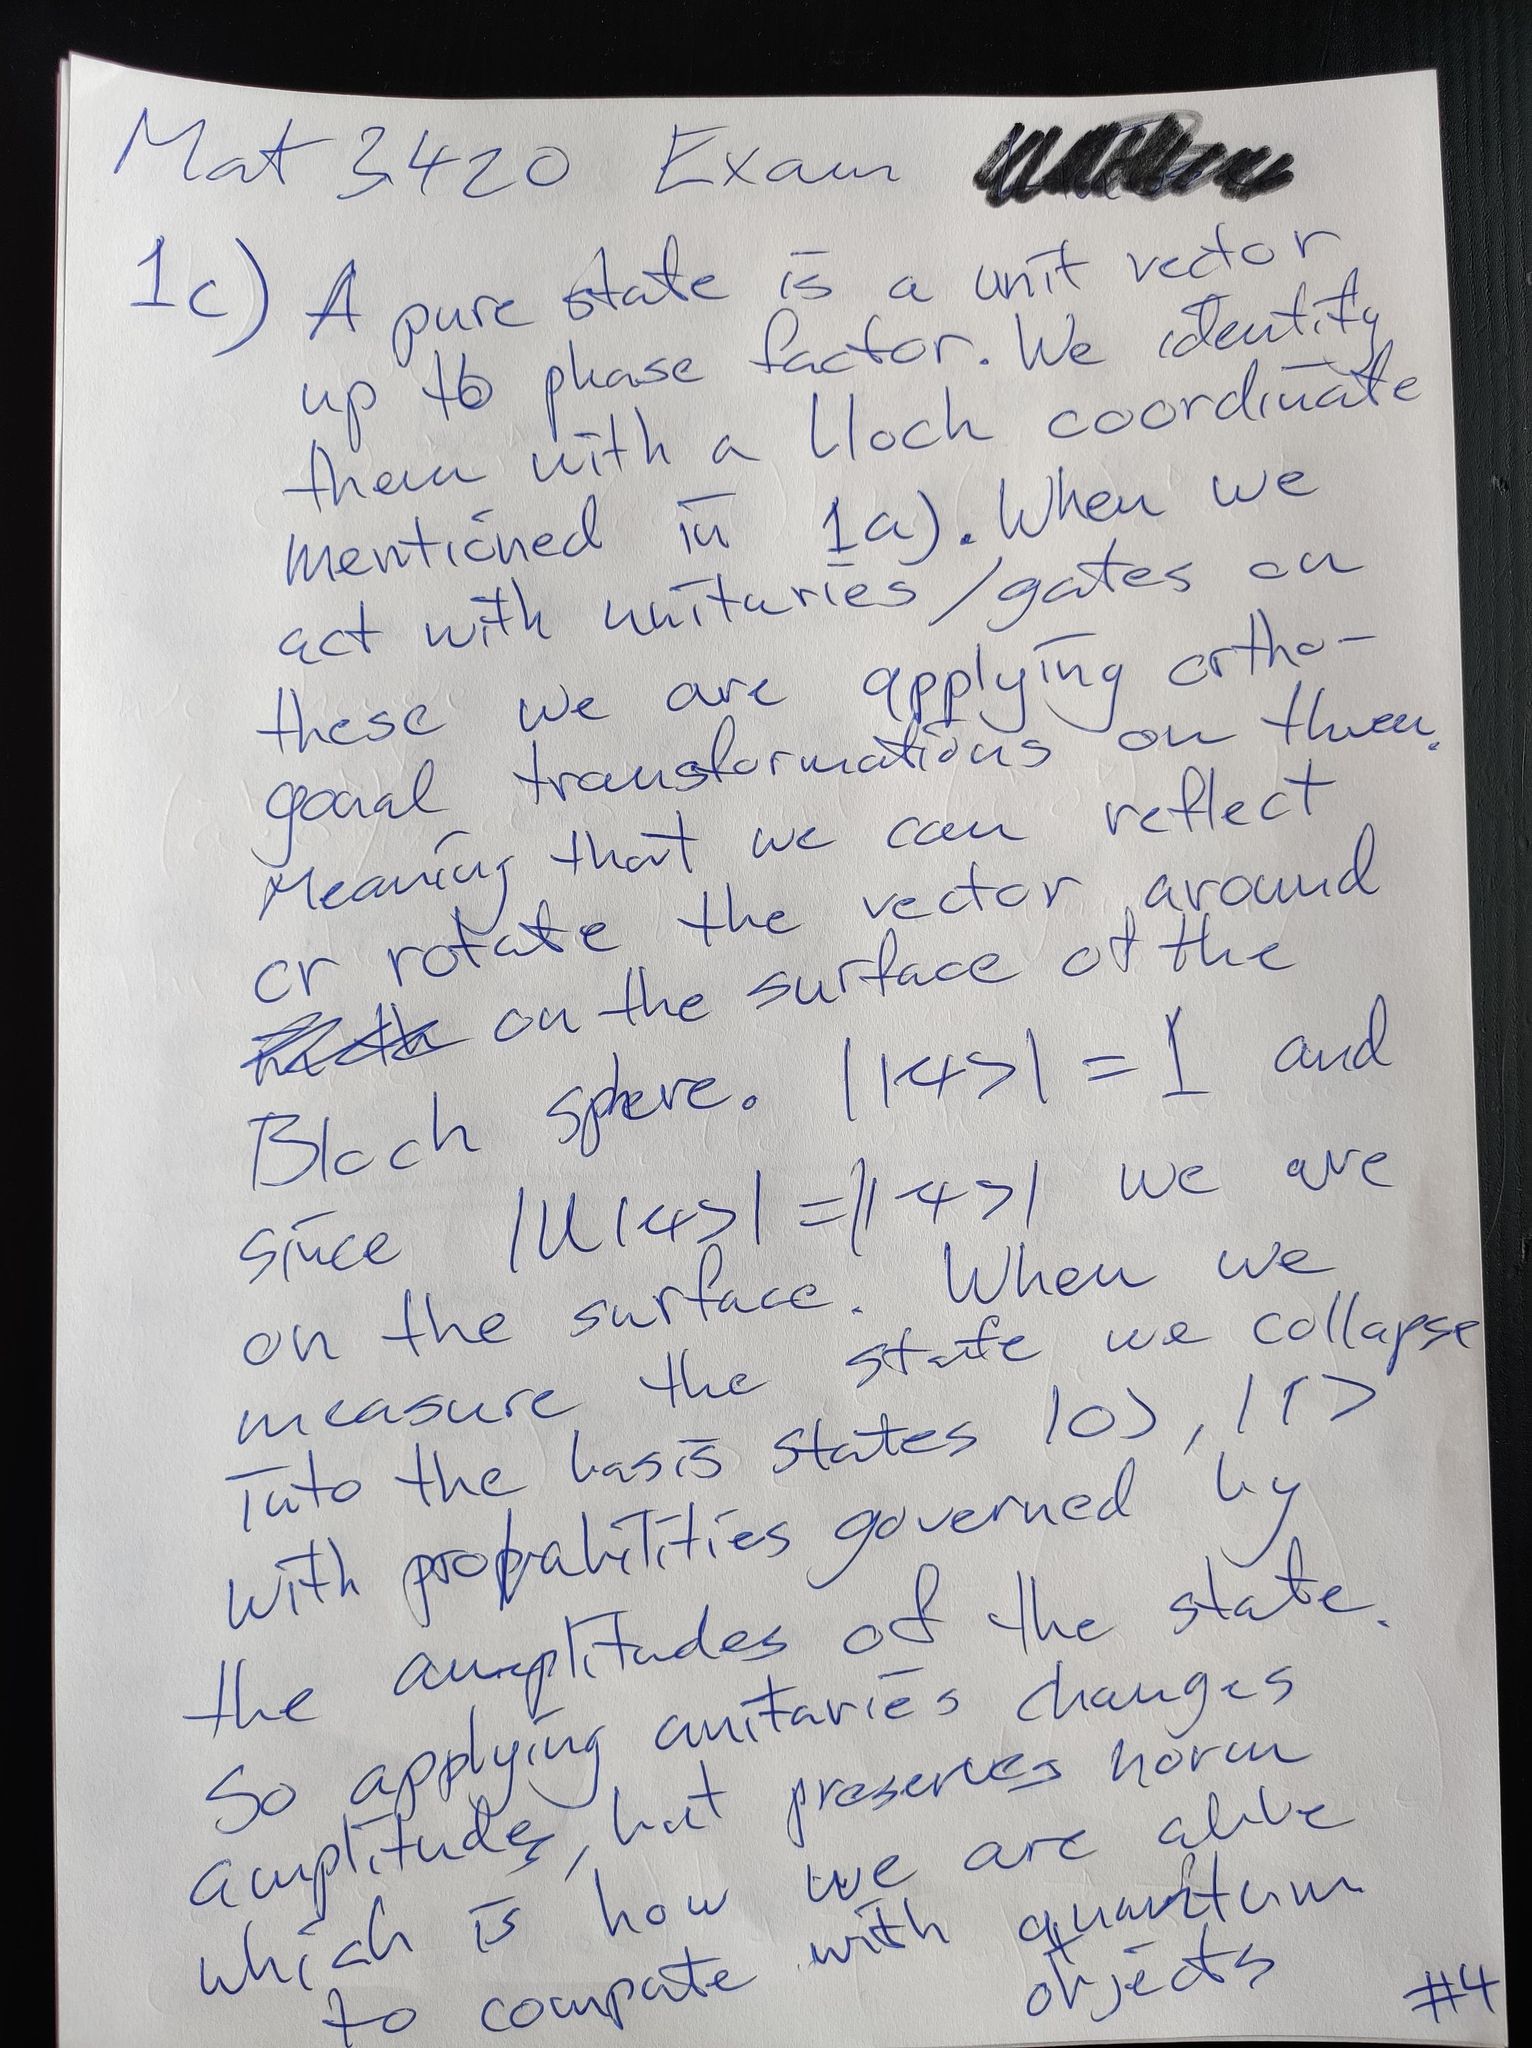 Mat 3420 Exam
1c) A pure state is a unit vector
up to phase factor. We identify
them with a Bloch coordinate
mentioned in 1a). When we
act with unitaries/gates on
these we are applying ortho-
gonal transformations on them.
Meaning that we can reflect
or rotate the vector around
on the surface of the
Bloch sphere. ||ψ>| = 1 and
since |U|ψ>| = ||ψ>| we are
on the surface. When we
measure the state we collapse
into the basis states |0>, |1>
with probabilities governed by
the amplitudes of the state.
So applying unitaries changes
amplitudes, but preserves norm
which is how we are able
to compute with quantum
objects
#4